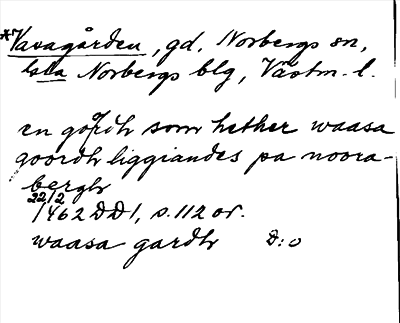 *Vasagården, gd, Norbergs sn,
Norbergs blg, Västm. l.
en goordh som hether waasa
goordh liggiandes pa noora-
bergh
22/2
1462 DD1, s. 112 or.
waasa gardh D:o